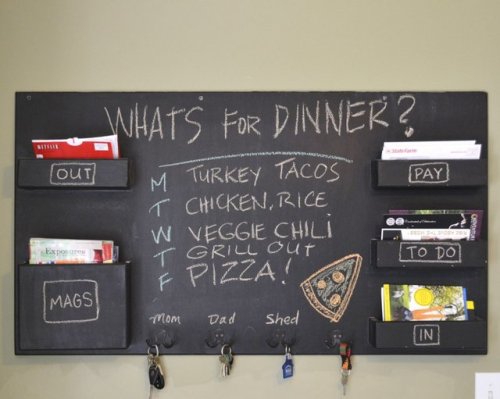 WHAT'S FOR DINNER?
M TURKEY TACOS
T CHICKEN, RICE
W VEGGIE CHILI
T GRILL OUT
F PIZZA!
OUT
MAGS
PAY
TO DO
IN
Mom Dad Shed
State Farm